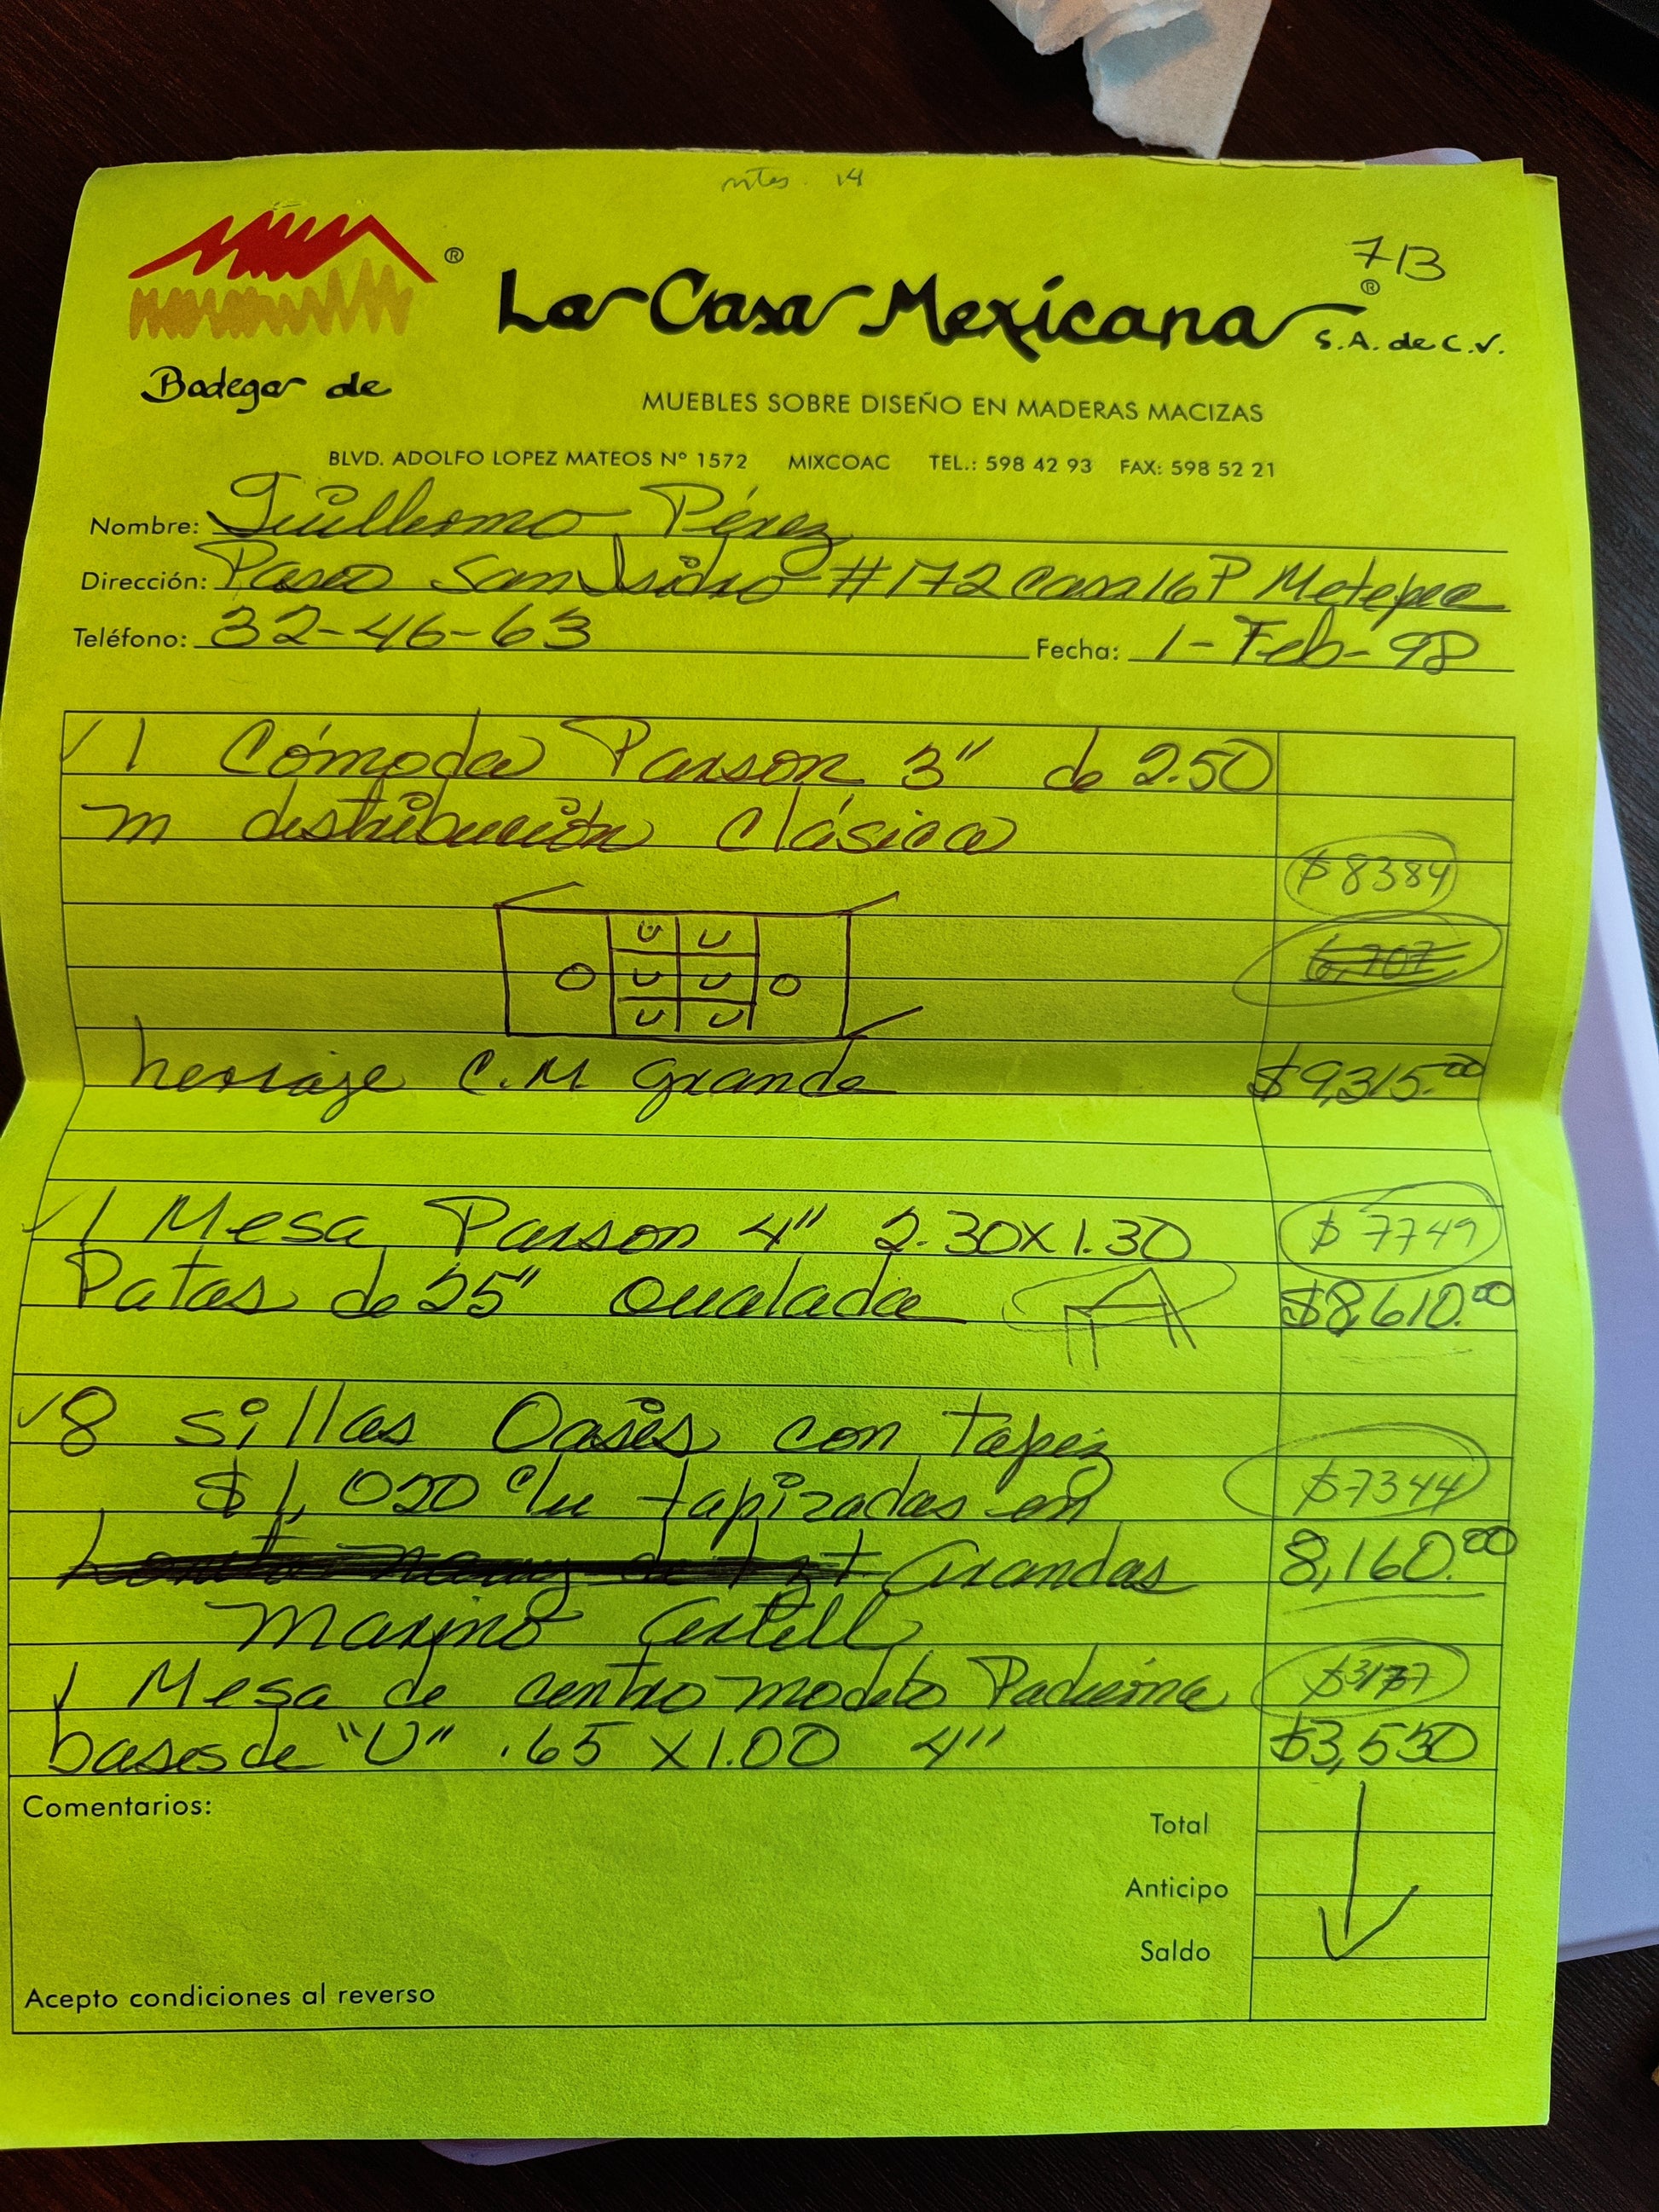 713
La Casa Mexicana ® S.A. de C.V.
®
Bodegas de
MUEBLES SOBRE DISEÑO EN MADERAS MACIZAS
BLVD. ADOLFO LOPEZ MATEOS Nº 1572 MIXCOAC TEL.: 598 42 93 FAX: 598 52 21
Nombre: Guillermo Pérez
Dirección: Paseo San Isidro #172 Casa 16 P Metepec
Teléfono: 32-46-63 Fecha: 1-Feb-98
1 Cómoda Parson 3" de 2.50
m distribución clásica
$8384
6,707
herraje C.M Grande $9,315.00
1 Mesa Parson 4" 2.30x1.30 $7749
Patas de 25" $8,610.00
8 sillas Oasis con tapiz
$1,020 c/u tapizadas en $7344
8,160.00
1 Mesa de centro modelo
bases de "U" .65 x 1.00 4" $3,530
Comentarios:
Total
Anticipo
Saldo
Acepto condiciones al reverso